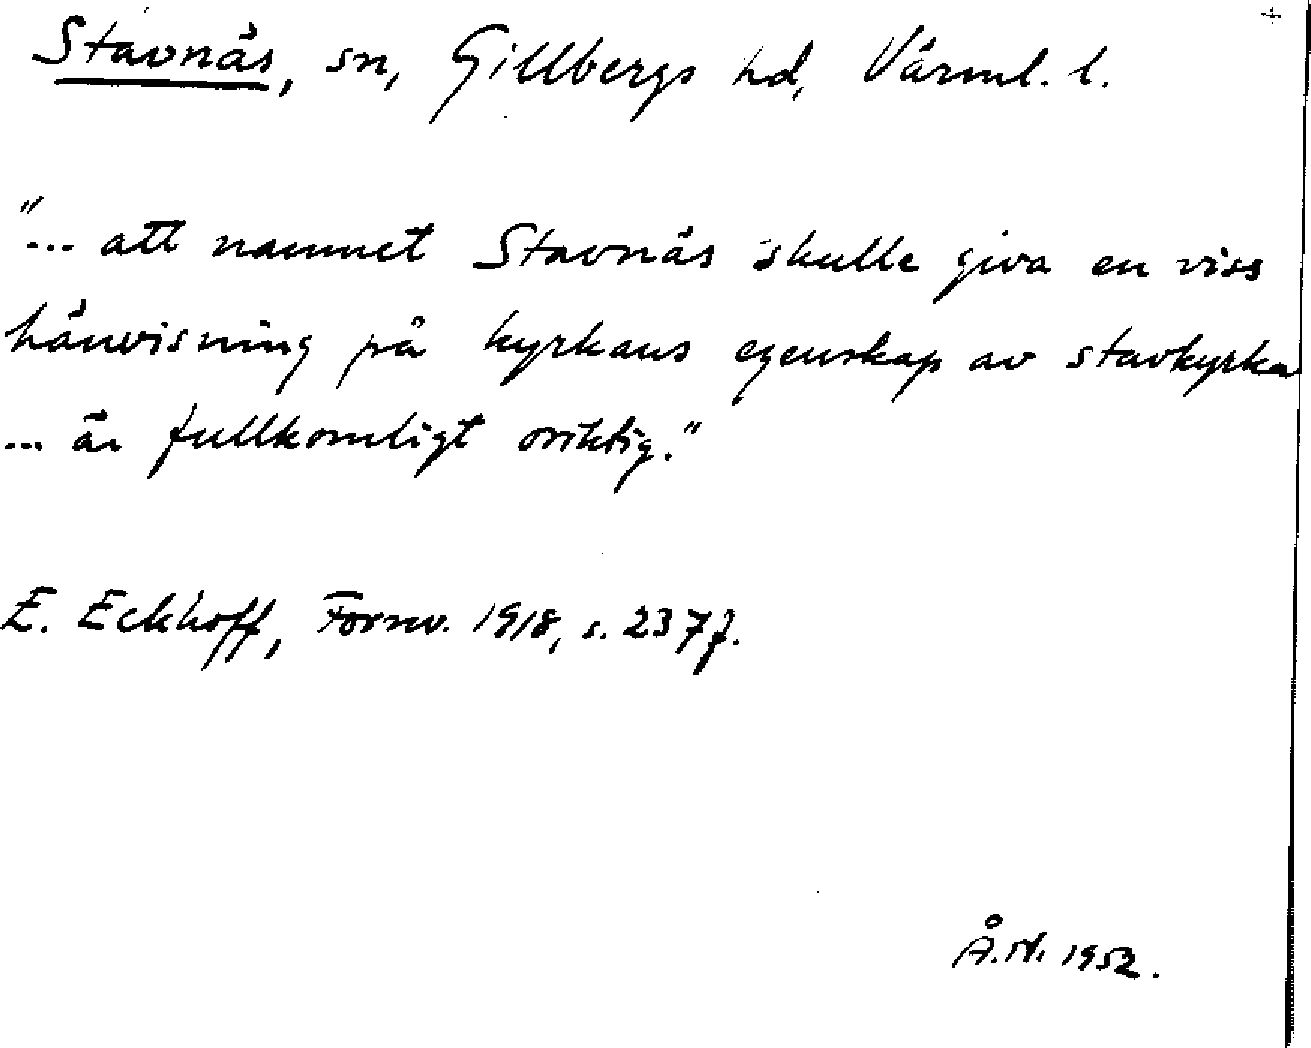 Stavnäs, sn, Gillbergs hd, Värml. l.
"... att namnet Stavnäs skulle giva en viss
hänvisning på kyrkans egenskap av stavkyrka
... är fullkomligt oriktig."
E. Eckhoff, Fornv. 1918, s. 237 f.
Å.N. 1952.